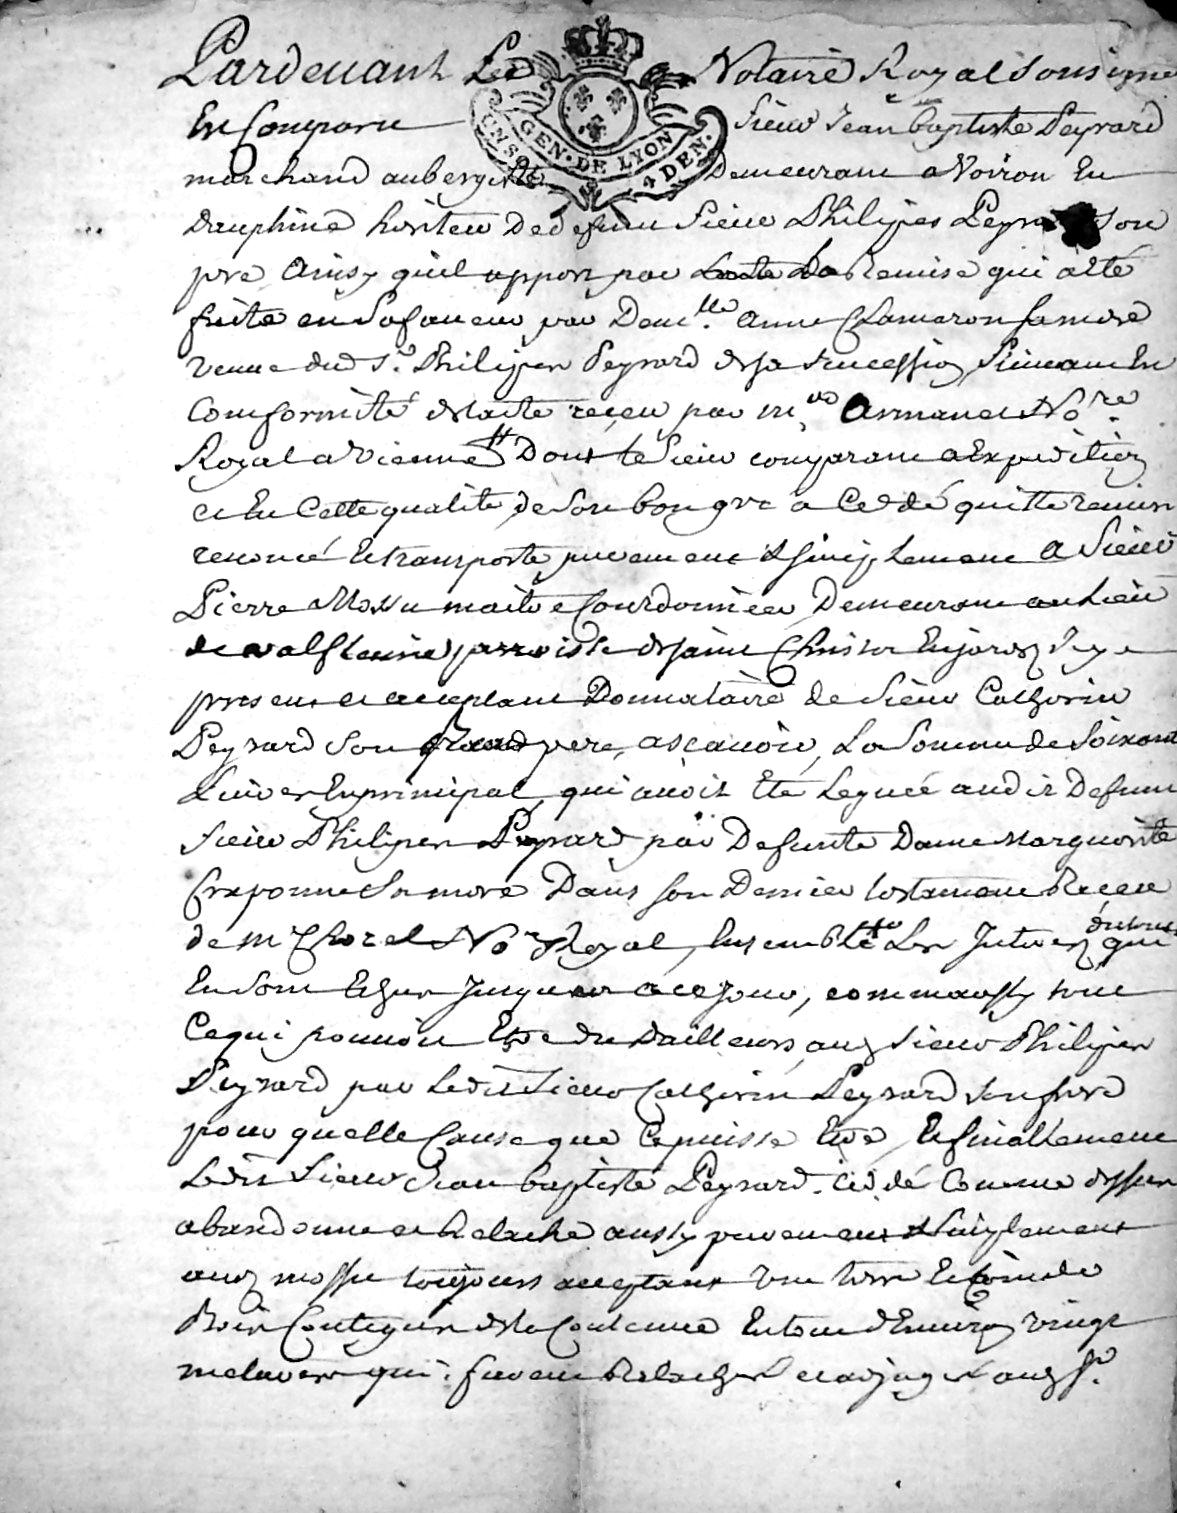 Pardevant Le Notaire Royal Sousigné
Est Comparu Sieur Jean baptiste Peyrard
GEN. DE LYON 4 DEN.
marchand aubergiste Demeurant a Voiron En
dauphiné heritier De defunt Sieur Philipes Peyrard Son
pere Ainsy quil appert par La Remise qui a eté
faite en Sa faveur par Dem.lle Anne Chameron Sa mere
veuve dud S.r Philipes Peyrard de sa Succession Suivant En
Conformité de lacte reçeu par M.re Armanet No.re
Royal a Vienne Dont le Sieur comparant a Expedition
et En Cette qualité de Son bon gré a Ceddé quitte remis
renoncé Et transporte purement & Simplement a Sieur
Pierre Mossu maitre Cordonnier Demeurant au Lieu
de parroisse de Saint Christo En
present et acceptant Donnataire de Sieur Catherin
Peyrard Son grand pere, ascavoir, La Somme de Soixante
Livres En principal, qui avoit Eté Leguée audit Defunt
Sieur Philipes Peyrard par Defunte Dame Marguerite
Craponne Sa mere Dans Son Dernier testament Receu
de M.e Chorel No.re Royal, Ensemble Les Interets qui
En Sont Echus Jusques a ce Jour, comme aussy tout
Ce qui pouvoit Etre du dailleurs aud Sieur Philipes
Peyrard par Ledit Sieur Catherin Peyrard Son frere
pour quelle Cause que Ce puisse Etre, Et finallement
Ledit Sieur Jean baptiste Peyrard. Cedé Comme dessus
abandonne et Relache aussy purement & Simplement
aud Mossu toujours acceptant Une terre Et Coin de
Bois Contigus de la Contenue En tout d'Environ vingt
metanées qui furent Relachés et adjugés aud S.r